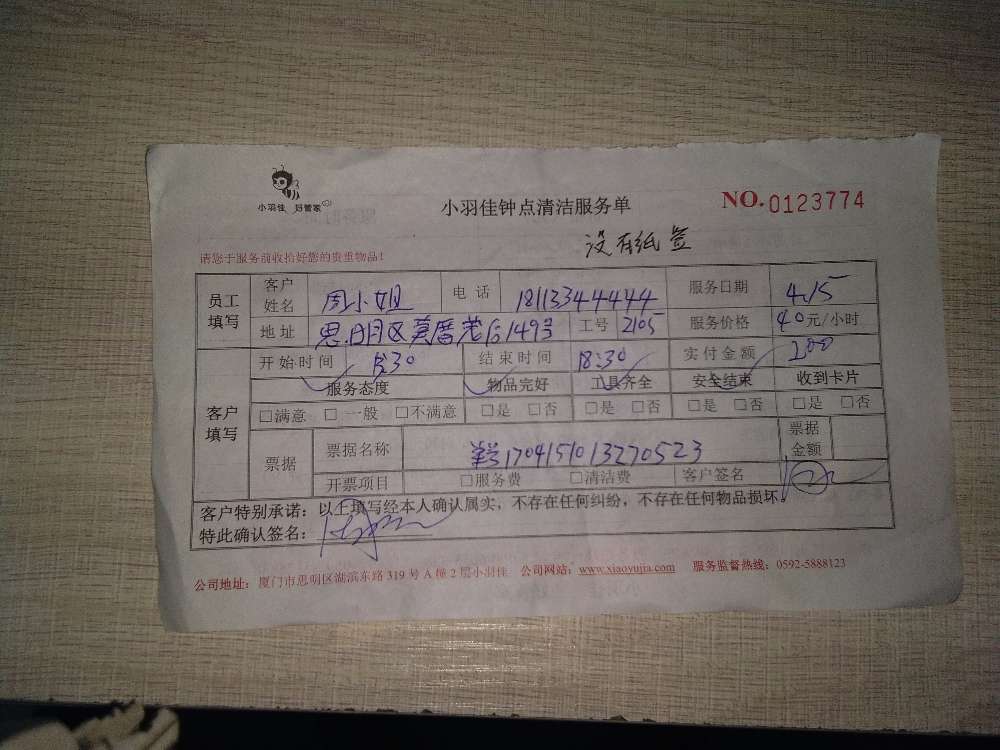 小羽佳 好管家
小羽佳钟点清洁服务单
NO.0123774
没有纸签
请您于服务前收拾好您的贵重物品!
员工填写 客户姓名 周小姐 电话 18113344444 服务日期 4.15
地址 思明区莫厝老后149号 工号 2105 服务价格 40元/小时
客户填写 开始时间 13:30 结束时间 18:30 实付金额 200
服务态度 物品完好 工具齐全 安全结束 收到卡片
□满意 □一般 □不满意 □是 □否 □是 □否 □是 □否 □是 □否
票据 票据名称 1704151013270523 票据金额
开票项目 □服务费 □清洁费 客户签名
客户特别承诺：以上填写经本人确认属实，不存在任何纠纷，不存在任何物品损坏。
特此确认签名：
公司地址：厦门市思明区湖滨东路 319 号 A 幢 2 层小羽佳 公司网站：www.xiaoyujia.com 服务监督热线：0592-5888123